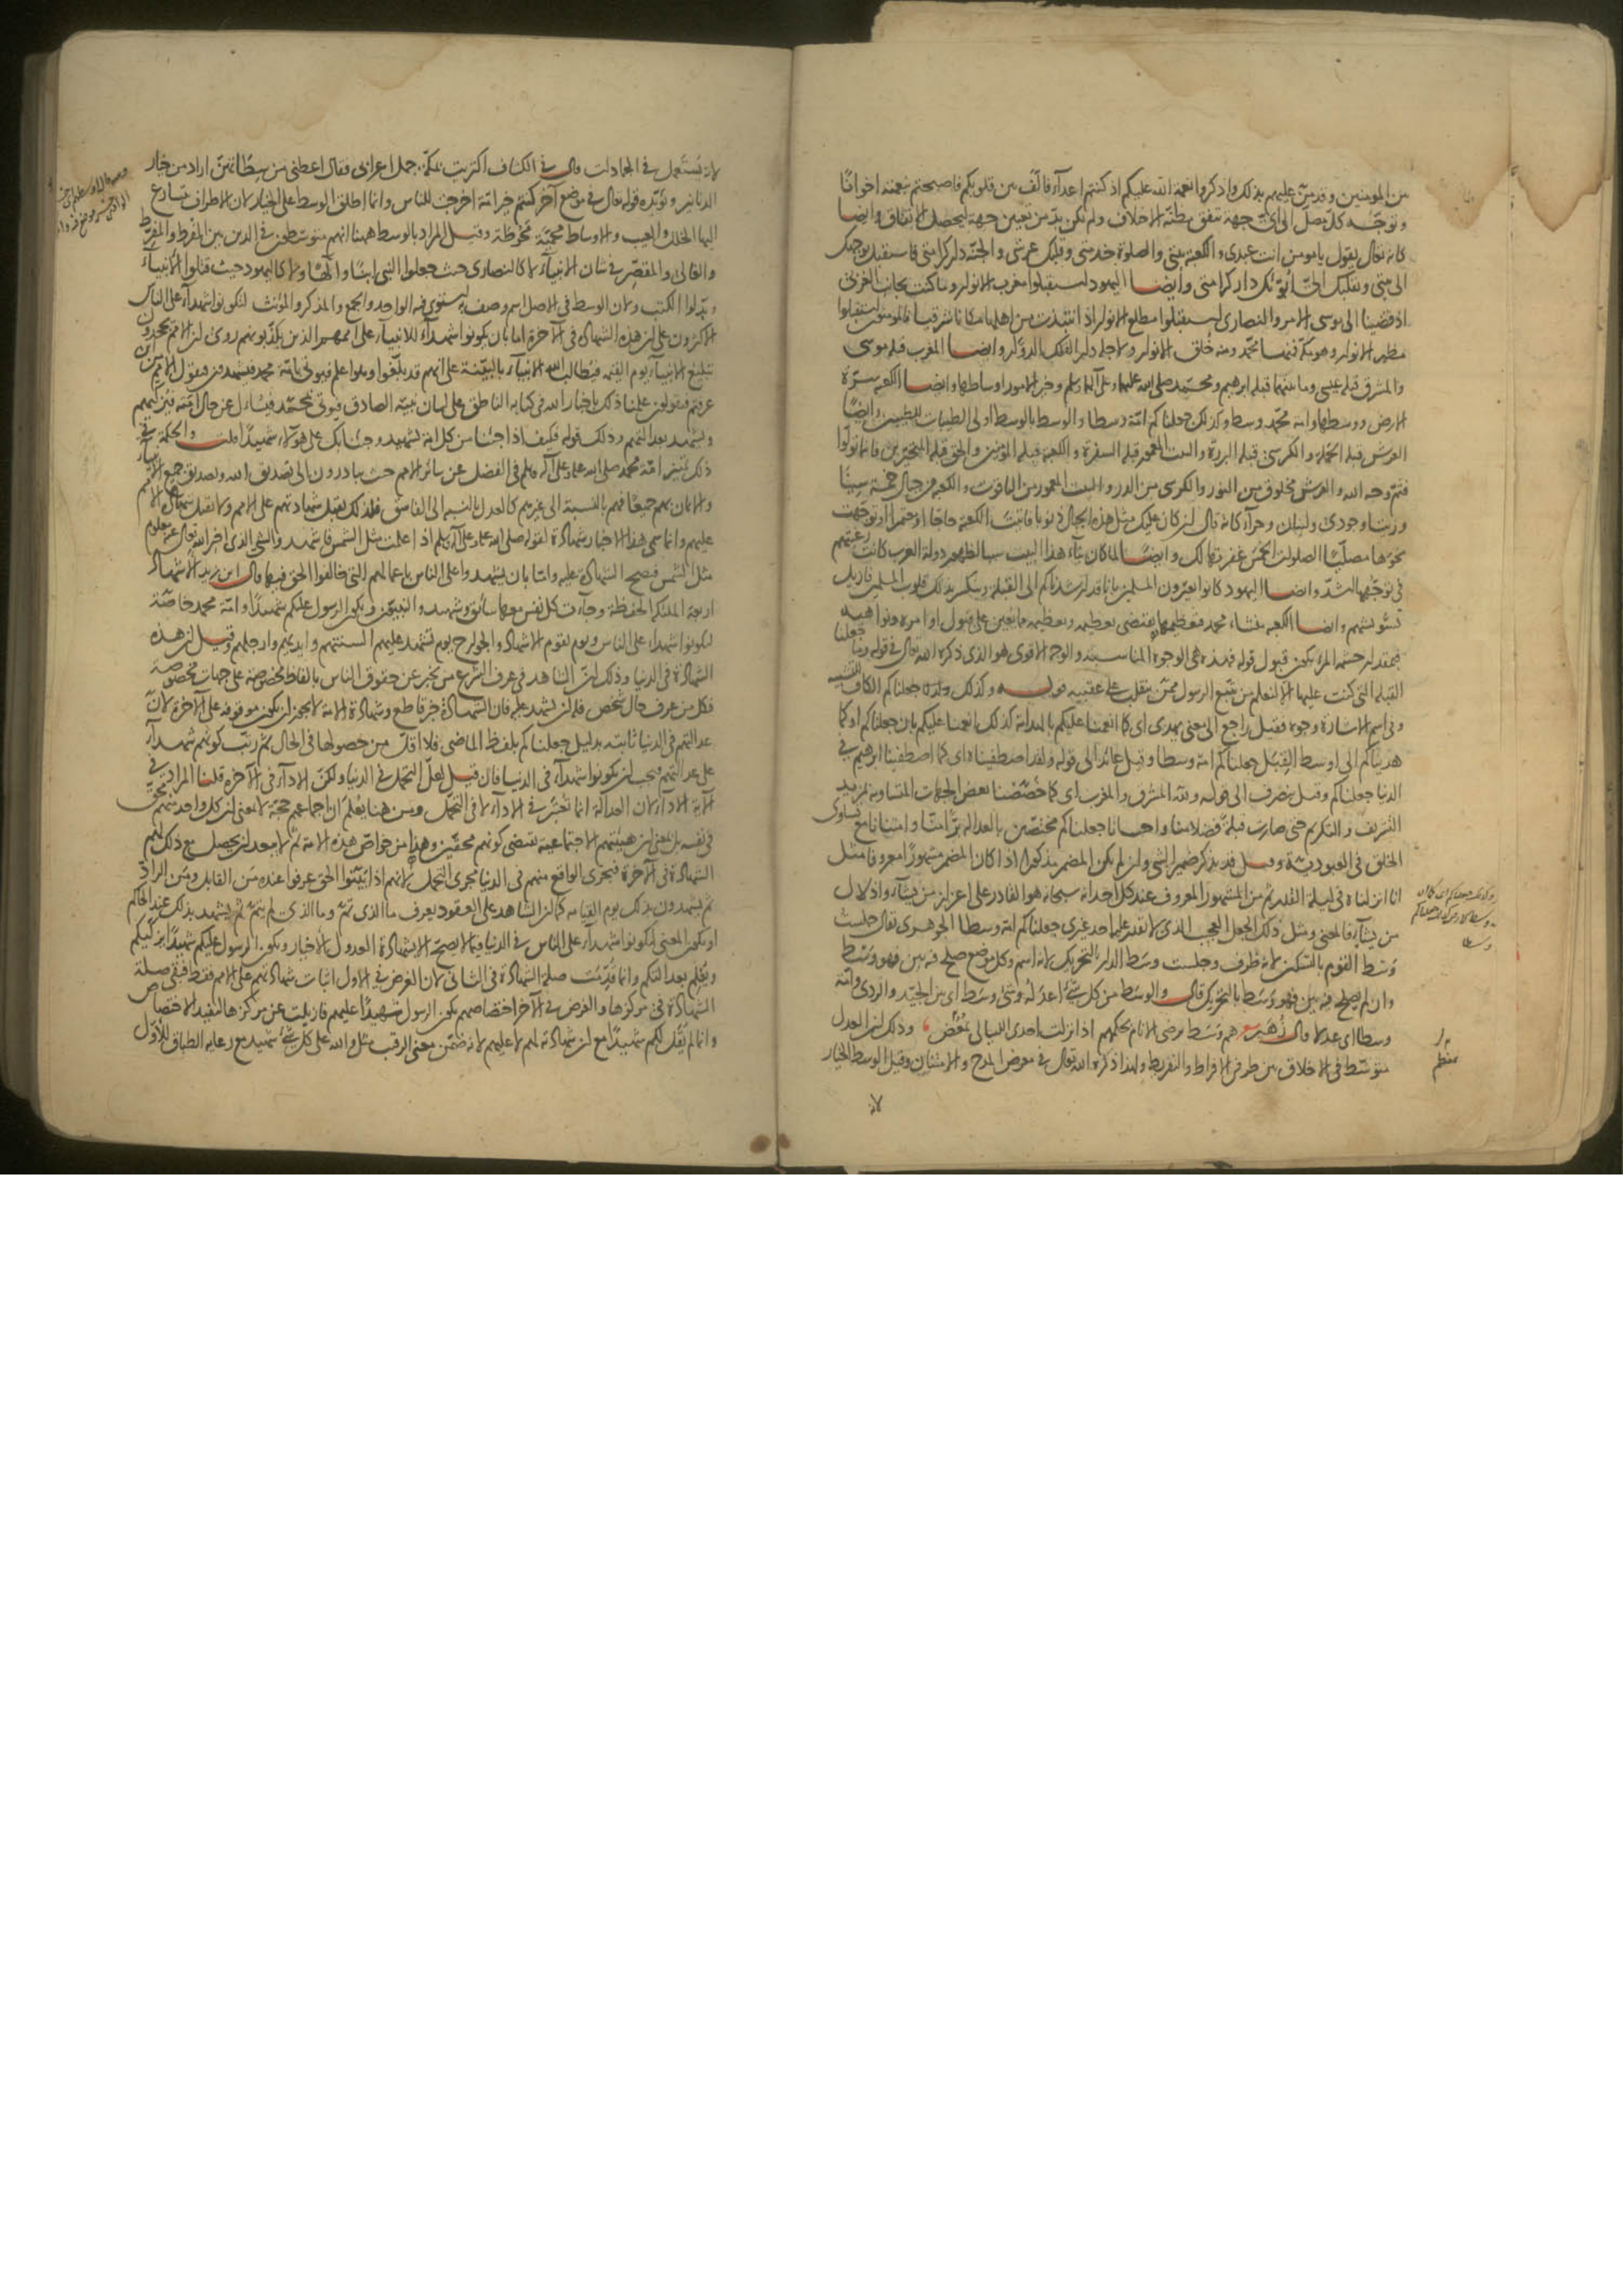 من المؤمنين وقد منّ عليهم بذلك واذكروا نعمة الله عليكم اذ كنتم اعداء فالّف بين قلوبكم فاصبحتم بنعمته اخوانا
وتوجّه كل مصلّ الى اىّ جهة تتفق مظنّة الاختلاف ولم يكن بدّ من تعيين جهة ليحصل الاتفاق وايضا
كانه تعالى يقول يا مومن انت عبدى والكعبة بيتى والصلوة خدمتى وقلبك عرشى والجنّة دار كرامتى فاستقبل بوجهك
الى بيتى وبقلبك الىّ ابوّئك دار كرامتى وايضا اليهود استقبلوا مغرب الانوار وما كنت بجانب الغربىّ
اذ قضينا الى موسى الامر والنصارى استقبلوا مطلع الانوار اذ انتبذت من اهلها مكانا شرقيا فالمومنون استقبلوا
مظهر الانوار وهو مكّة فمنها محمّد ومنه خلق الانوار ولاجله دار الفلك الدوّار وايضا المغرب قبلة موسى
والمشرق قبلة عيسى وما بينهما قبلة ابرهيم ومحمّد صلى الله عليهما وعلى آلهما وسلم وخير الامور اوساطها وايضا الكعبة سرّة
الارض ووسطها وامة محمّد وسط وكذلك جعلناكم امّة وسطا والوسط بالوسط اولى الطيبات للطيبين وايضا
العرش قبلة الحملة والكرسى قبلة البررة والبيت المعمور قبلة السفرة والكعبة قبلة المؤمنين والحق قبلة المتحيّرين فاينما تولّوا
فثمّ وجه الله والعرش مخلوق من النور والكرسى من الدر والبيت المعمور من الياقوت والكعبة من جبال خمسة سينا
وزيتا وجودى ولبنان وحراء كانه قال ان كان عليك مثل هذه الجبال ذنوبا فاتيت الكعبة حاجّا او معتمرا او توجّهت
نحوها مصلّيا الصلوات الخمس غفرتها لك وايضا لما كان بناء هذا البيت سببا لظهور دولة العرب كانت رغبتهم
فى توجّهها اشدّ وايضا اليهود كانوا يعيّرون المسلمين بانا قد ارشدناكم الى القبلة وينكسر بذلك قلوب المسلمين فازيل
تشويشهم وايضا الكعبة منشاء محمد فتعظيمها يقتضى تعظيمه وتعظيمه مما يعين على قبول اوامره ونواهيه
فبمقدار حشمة المرء يكون قبول قوله فهذه هى الوجوه المناسبة والوجه الاقوى هو الذى ذكره الله تعالى فى قوله وما جعلنا
القبلة التى كنت عليها الا لنعلم من يتّبع الرسول ممّن ينقلب على عقبيه قوله وكذلك جعلناكم الكاف للتشبيه
وفى اسم الاشارة وجوه فقيل راجع الى معنى يهدى اى كما انعمنا عليكم بالهداية كذلك انعمنا عليكم بان جعلناكم او كما
هديناكم الى اوسط القبل جعلناكم امة وسطا وقيل عائد الى قوله ولقد اصطفيناه اى كما اصطفينا ابرهيم فى
الدنيا جعلناكم وقيل ينصرف الى قوله ولله المشرق والمغرب اى كما خصّصنا بعض الجهات المتساوية بمزيد
التشريف والتكريم حتى صارت قبلة فضلا منا واحسانا جعلناكم مختصّين بالعدالة برّا منّا وامتنانا مع تساوى
الخلق فى العبوديّة وقيل قد يذكر ضمير الشى وان لم يكن المضمر مذكورا اذا كان المضمر مشهورا معروفا مثل
انا انزلناه فى ليلة القدر ثم من المشهور المعروف عند كل احد انه سبحانه هو القادر على اعزاز من يشاء واذلال
من يشاء فالمعنى ومثل ذلك الجعل العجيب الذى لا يقدر عليه احد غيرى جعلناكم امة وسطا الجوهرى يقال جلست
وسْط القوم بالتسكين لانه ظرف وجلست وسَط الدار بالتحريك لانه اسم وكل موضع صلح فيه بين فهو وسْط
وان لم يصلح فيه بين فهو وسَط بالتحريك قال والوسط من كل شئ اعدله وشئ وسط اى بين الجيّد والردى وامّة
وسطا اى عدلا قال زهير هم وسط يرضى الانام بحكمهم اذا نزلت احدى الليالى بمعضم وذلك ان العدل
متوسّط فى الاخلاق بين طرفى الافراط والتفريط ولهذا ذكره الله تعالى فى معرض المدح والامتنان وقيل الوسط الخيار
بمعظم
لانه
لانه يستعمل فى الجمادات قال فى الكشاف اكتريت بمكّة جمل اعرابى فقال اعطنى من سِطَاتهنّ اراد من خيار
الدنانير ويؤيّده قوله تعالى فى موضع آخر كنتم خير امّة اخرجت للناس وانما اطلق الوسط على الخيار لان الاطراف يتسارع
اليها الخلل والعيب والاوساط محميّة محوّطة وقيل المراد بالوسط ههنا انهم متوسّطون فى الدين بين المفرط والمفرّط
والغالى والمقصّر فى شان الانبياء لا كالنصارى حيث جعلوا النبى ابنا والها ولا كاليهود حيث قتلوا الانبياء
وبدّلوا الكتب ولان الوسط فى الاصل اسم وصف به استوى فيه الواحد والجمع والمذكر والمؤنث لتكونوا شهداء على الناس
الاكثرون على ان هذه الشهادة فى الآخرة اما بان يكونوا شهداء للانبياء على اممهم الذين يكذّبونهم روى ان الامم يجحدون
تبليغ الانبياء يوم القيمة فيطالب الله الانبياء بالبيّنة على انهم قد بلّغوا وهو اعلم فيوتى بامّة محمد فيشهدون فيقول الامم من اين
عرفتم فيقولون علمنا ذلك باخبار الله فى كتابه الناطق على لسان نبيّه الصادق فيوتى بمحمّد فيسئل عن حال امّته فيزكّيهم
ويشهد بعدالتهم وذلك قوله فكيف اذا جئنا من كل امة بشهيد وجئنا بك على هؤلاء شهيدا قلت والحكمة فى
ذلك تمييز امّة محمد صلى الله عليه وعلى آله وسلم فى الفضل عن سائر الامم حيث يبادرون الى تصديق الله وتصديق جميع الانبياء
والايمان بهم جميعا فهم بالنسبة الى غيرهم كالعدل بالنسبة الى الفاسق فلذلك يقبل شهادتهم على الامم ولا يقبل شهادة الامم
عليهم وانما سمى هذا الاخبار شهادة لقوله صلى الله عليه وعلى آله وسلم اذا علمت مثل الشمس فاشهد والشى الذى اخبر الله تعالى عنه معلوم
مثل الشمس فيصح الشهادة عليه واما بان يشهدوا على الناس باعمالهم التى خالفوا الحق فيها قال ابن زيد الاشهاد
اربعة الملائكة الحفظة وجاءت كل نفس معها سائق وشهيد والنبيّون ويكون الرسول عليكم شهيدا وامّة محمد خاصّة
لتكونوا شهداء على الناس ويوم يقوم الاشهاد والجوارح يوم تشهد عليهم السنتهم وايديهم وارجلهم وقيل ان هذه
الشهادة فى الدنيا وذلك ان الشاهد فى عرف الشرع من يخبر عن حقوق الناس بالفاظ مخصوصة على جهات مخصوصة
فكل من عرف حال شخص فله ان يشهد عليه فان الشهادة خبر قاطع وشهادة الامة لا يجوز ان يكون موقوفة على الآخرة لانّ
عدالتهم فى الدنيا ثابتة بدليل جعلناكم بلفظ الماضى فلا اقلّ من حصولها فى الحال ثم رتّب كونهم شهداء
على عدالتهم فيجب ان يكونوا شهداء فى الدنيا فان قيل لعلّ التحمّل فى الدنيا ولكنّ الاداء فى الآخرة قلنا المراد فى
الآية الاداء لان العدالة انما تعتبر فى الاداء لا فى التحمّل ومن هنا يعلم ان اجماعهم حجّة لا بمعنى ان كل واحد منهم محقّ
فى نفسه بل بمعنى ان هيئتهم الاجتماعية يقتضى كونهم محقّين وهذا من خواصّ هذه الامة ثم لا يبعد ان يحصل مع ذلك لهم
الشهادة فى الآخرة فيجرى الواقع منهم فى الدنيا مجرى التحمّل لانهم اذا بيّنوا الحق عرفوا عنده من القابل ومن الرادّ
ثم يشهدون بذلك يوم القيامة كما ان الشاهد على العقود يعرف ما الذى تمّ وما الذى لم يتمّ ثم يشهد بذلك عند الحاكم
او يكون المعنى لتكونوا شهداء على الناس فى الدنيا فيما لا يصحّ الا بشهادة العدول الاخيار ويكون الرسول عليكم شهيدا يزكّيكم
ويعلم بعدالتكم وانما قدّمت صلة الشهادة فى الثانى لان الغرض فى الاول اثبات شهادتهم على الامم فقط فبقى صلة
الشهادة فى مركزها والغرض فى الآخر اختصاصهم بكون الرسول شهيدا عليهم فازيلت عن مركزها ليفيد الاختصاص
وانما لم يقل لكم شهيدا مع ان شهادته لهم لا عليهم لانه ضمّن معنى الرقيب مثل والله على كل شئ شهيد مع رعاية الطباق للاوّل